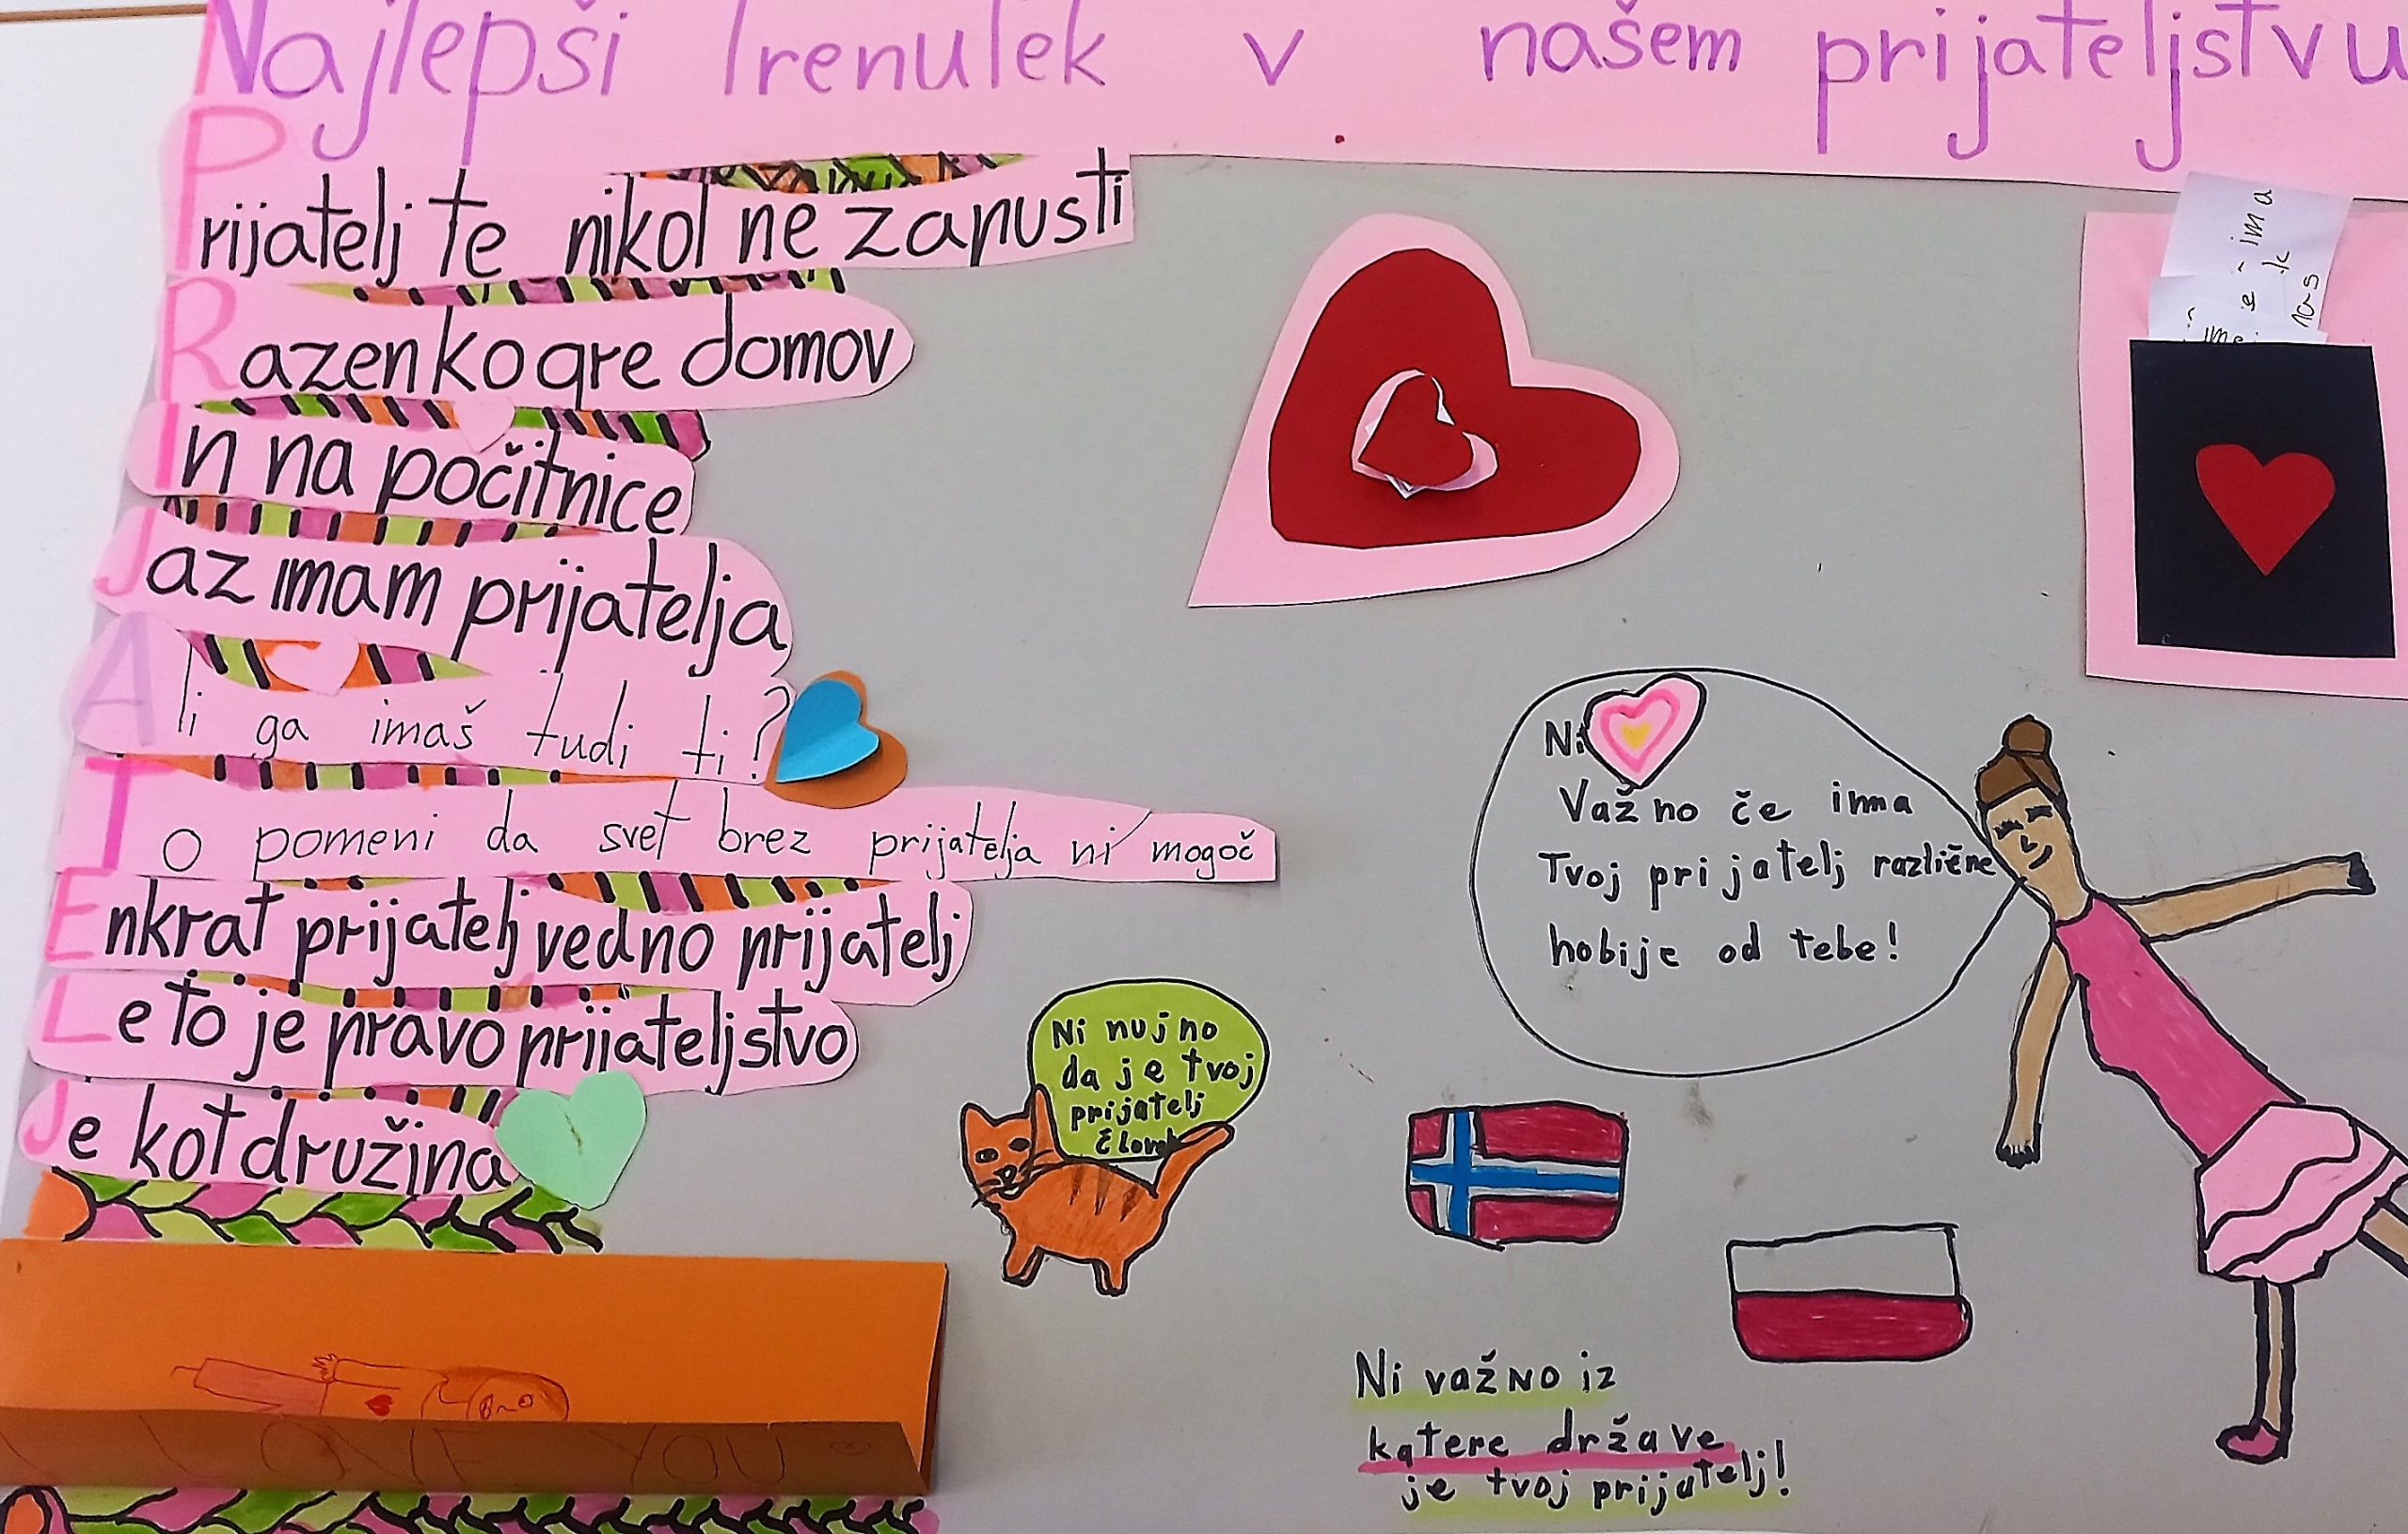 Najlepši Trenutek v našem prijateljstvu
Prijatelj te nikol ne zapusti
Razen ko gre domov
In na počitnice
Jaz imam prijatelja
Ali ga imaš tudi ti?
To pomeni da svet brez prijatelja ni mogoč
Enkrat prijatelj vedno prijatelj
Le to je pravo prijateljstvo
Je kot družina
Ni
Važno če ima
Tvoj prijatelj različne
hobije od tebe!
Ni nujno
da je tvoj
prijatelj
Ni važno iz
katere države
je tvoj prijatelj!
I LOVE YOU
ima